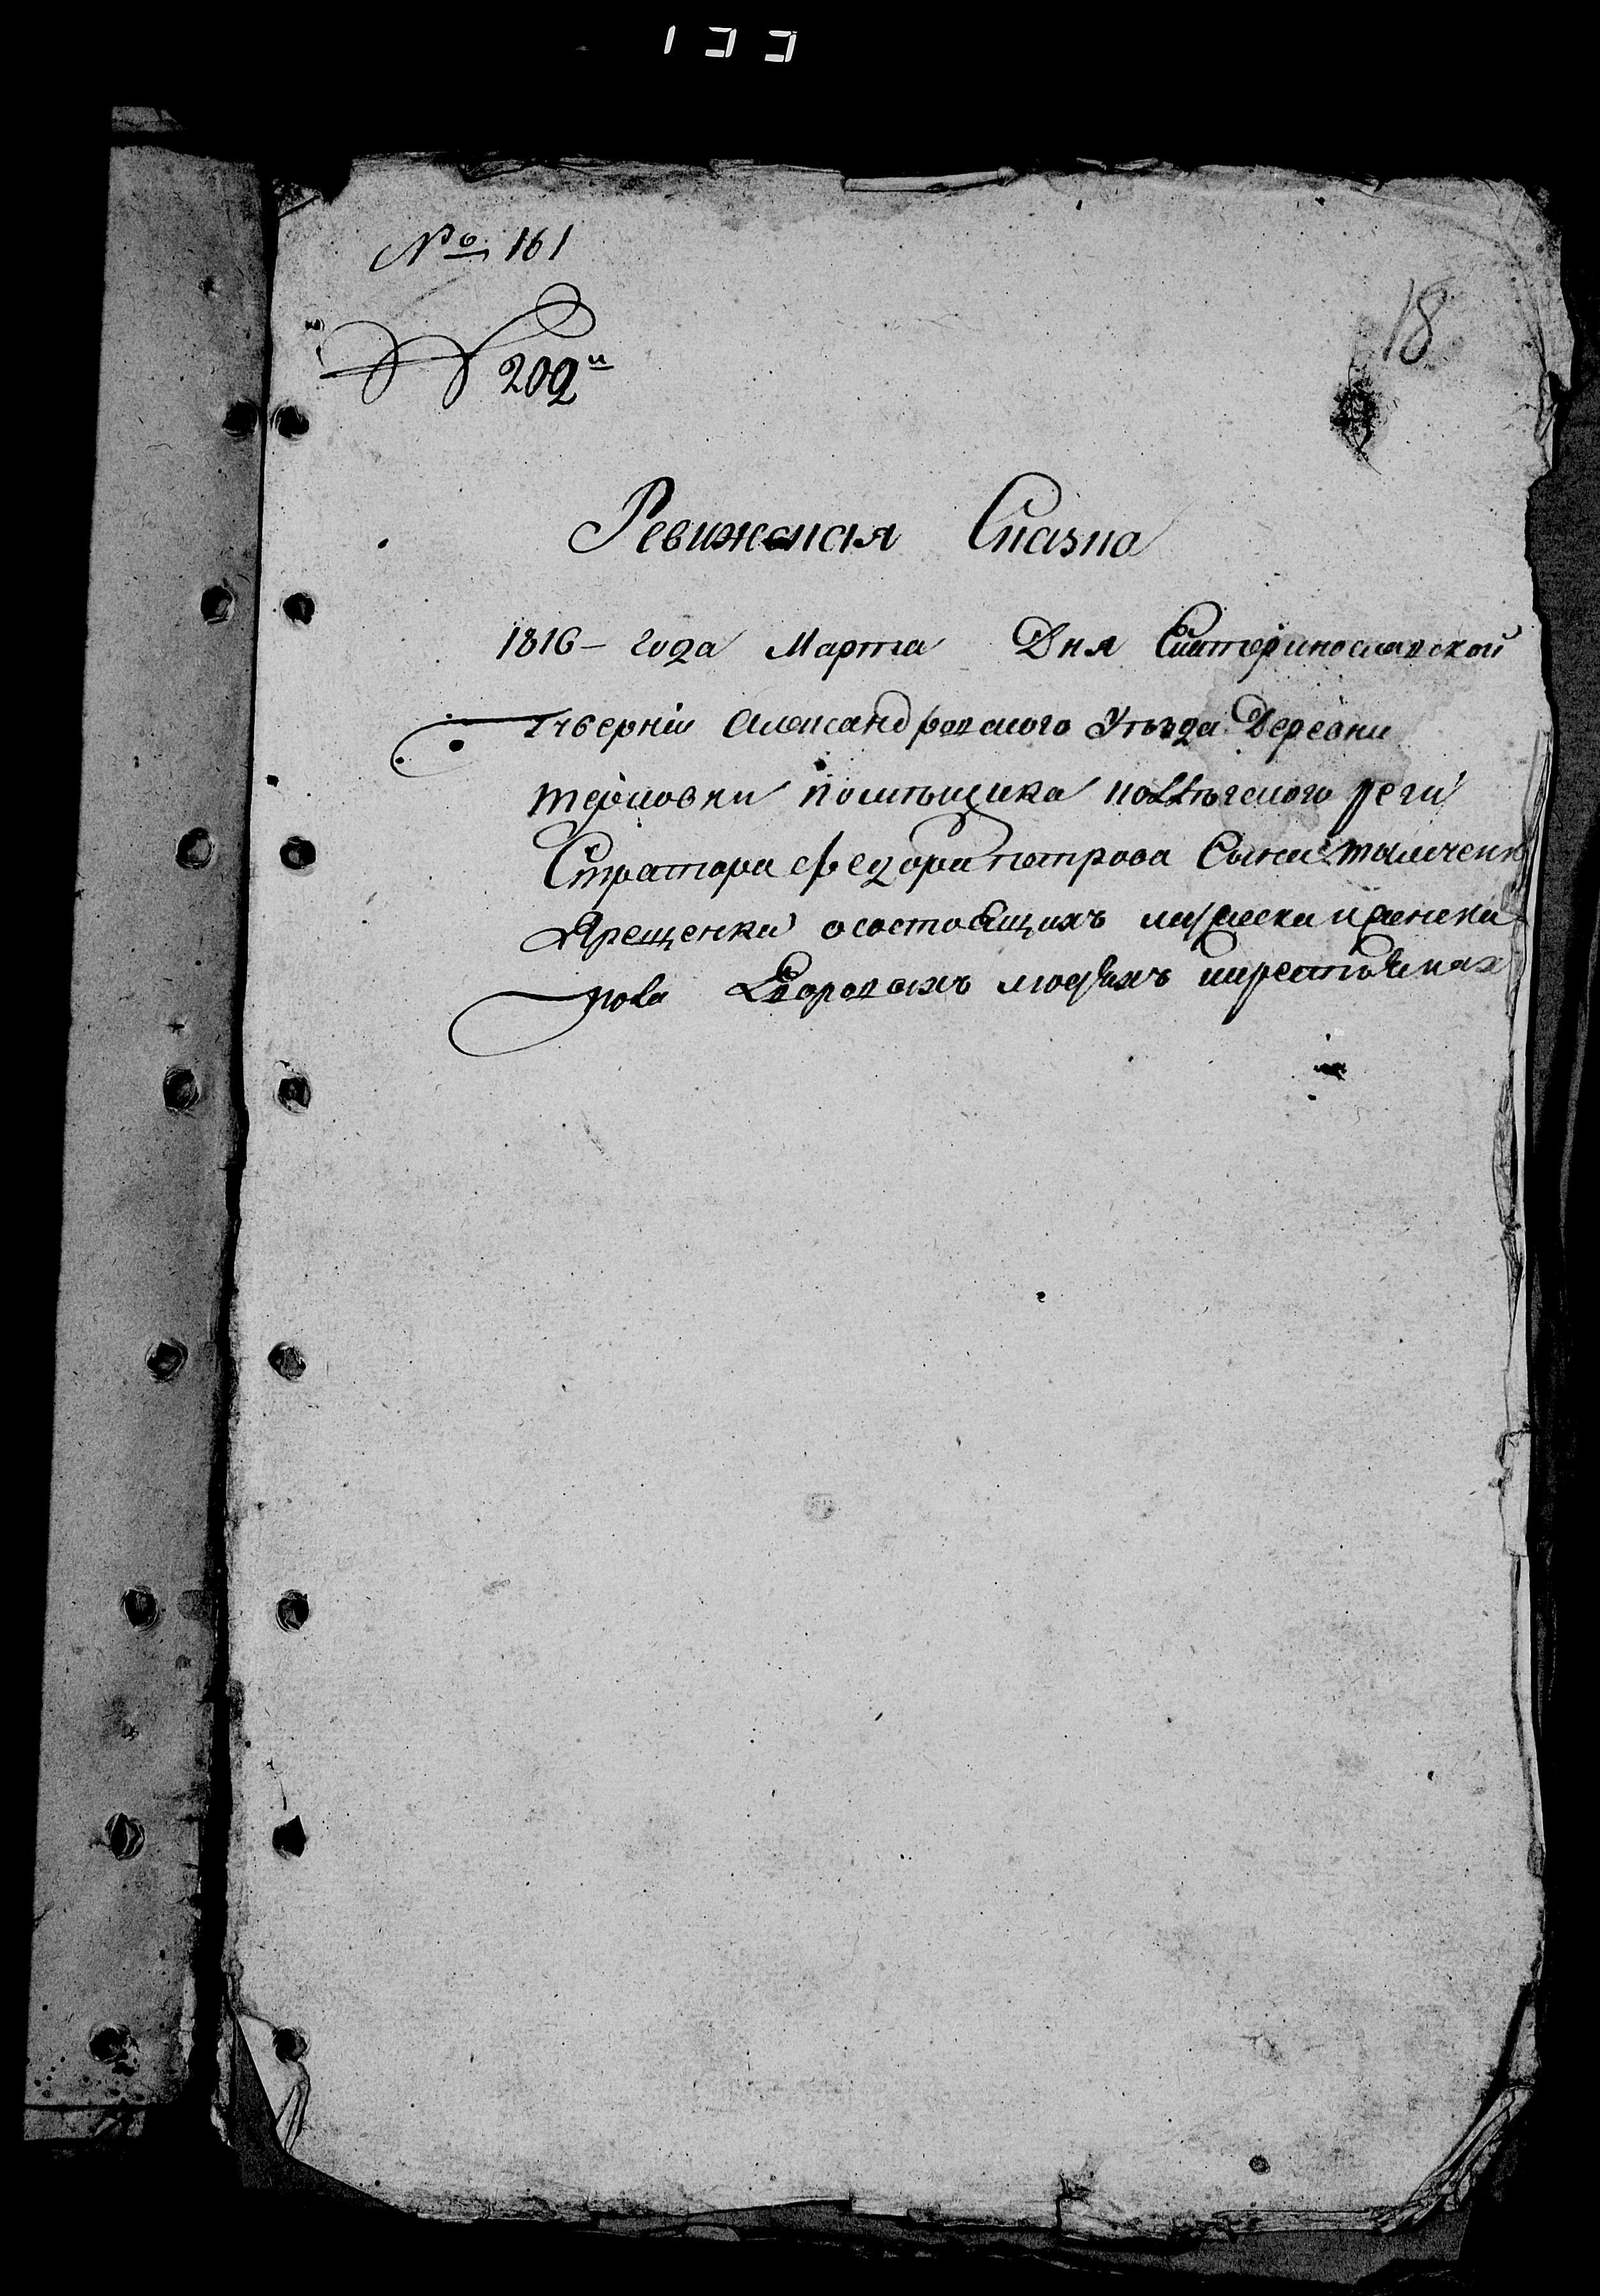 133
№ 161
18
№ 202й
Ревижская Сказка
1816 – года Марта Дня Екатеринославской
Губернiи Александровского Уѣзда Деревни
терновки помѣщика коллѣгского реги
Стратора федора петрова Сына
осостоящихъ мужеска иженска
пола Дворовыхъ людѣхъ икрестьянах